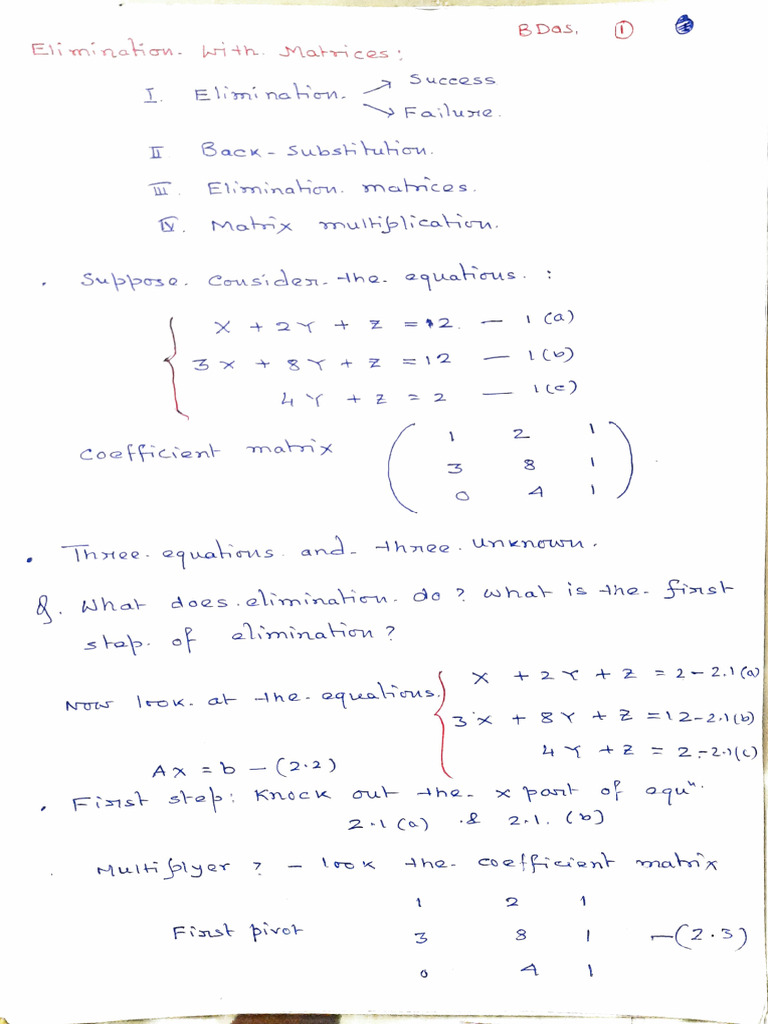 BDas. ①
Elimination with Matrices:
I. Elimination. Success
Failure.
II Back-substitution.
III. Elimination matrices.
IV. Matrix multiplication.
. Suppose consider the equations :
X + 2Y + Z = 12. — 1(a)
3X + 8Y + Z = 12 — 1(b)
4Y + Z = 2 — 1(c)
Coefficient matrix
1 2 1
3 8 1
0 4 1
. Three equations and three unknown.
Q. What does elimination do? What is the first
step of elimination?
Now look at the equations.
X + 2Y + Z = 2 - 2.1(a)
3X + 8Y + Z = 12 - 2.1(b)
4Y + Z = 2 - 2.1(c)
AX = b — (2.2)
. First step: Knock out the x part of equⁿ.
2.1(a) & 2.1.(b)
Multiplyer? - look the coefficient matrix
First pivot
1 2 1
3 8 1 — (2.3)
0 4 1